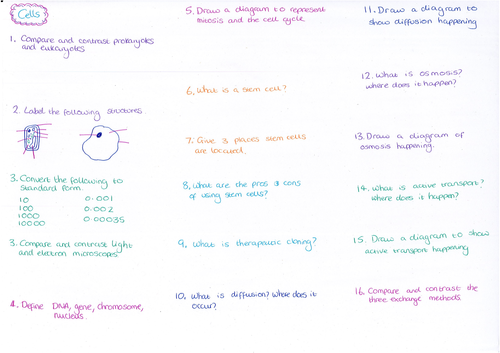 Cells
1. Compare and contrast prokaryotes
and eukaryotes
2. Label the following structures.
3. Convert the following to
standard form.
10 0.001
100 0.002
1000 0.00035
10000
3. Compare and contrast light
and electron microscopes
4. Define DNA, gene, chromosome,
nucleus.
5. Draw a diagram to represent
mitosis and the cell cycle
6. What is a stem cell?
7. Give 3 places stem cells
are located.
8. What are the pros & cons
of using stem cells?
9. What is therapeutic cloning?
10. What is diffusion? Where does it
occur?
11. Draw a diagram to
show diffusion happening
12. What is osmosis?
Where does it happen?
13. Draw a diagram of
osmosis happening.
14. What is active transport?
Where does it happen?
15. Draw a diagram to show
active transport happening
16. Compare and contrast the
three exchange methods.